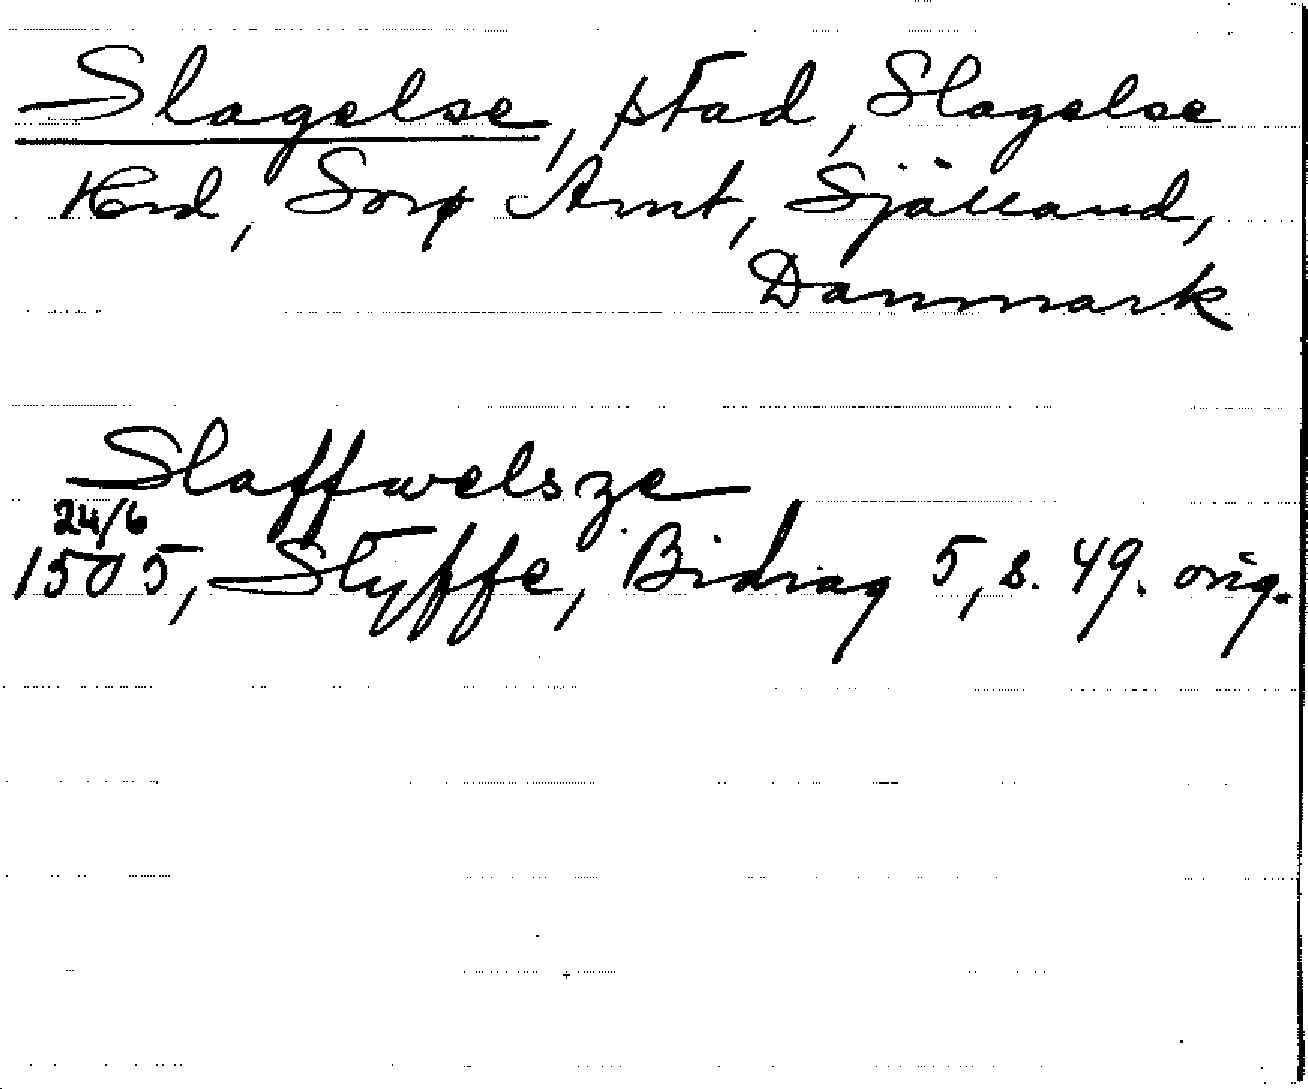 Slagelse, stad, Slagelse
Hrd, Sorø Amt, Själland,
Danmark
Slaffwelsze
24/6
1505, Styffe, Bidrag 5, s. 49. orig.